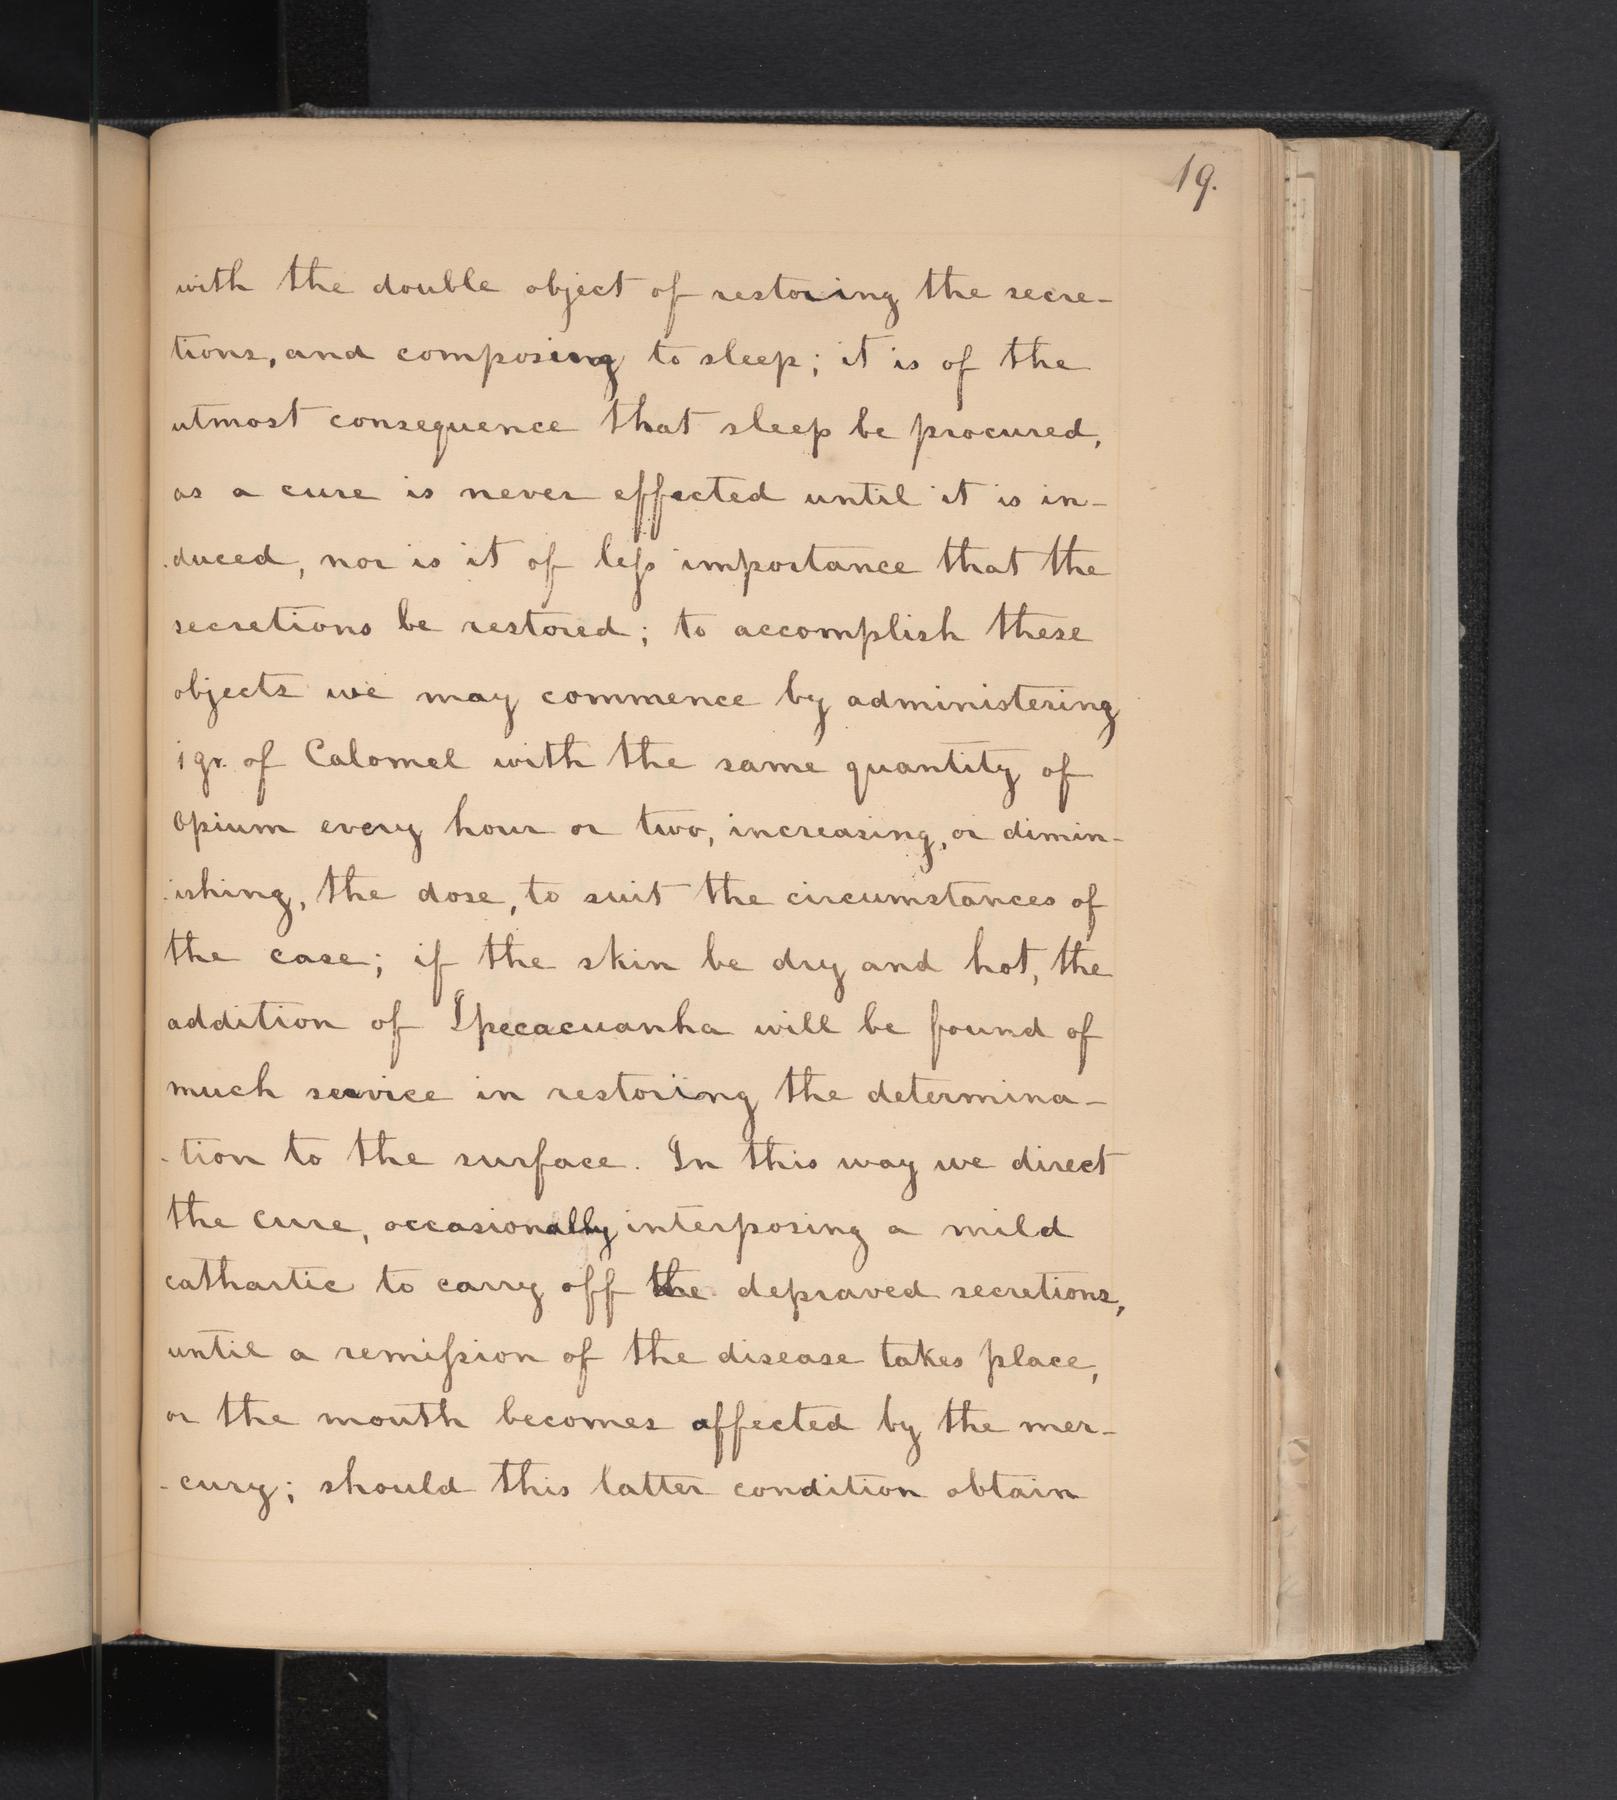 19.
with the double object of restoring the secre-
tions, and composing to sleep; it is of the
utmost consequence that sleep be procured,
as a cure is never effected until it is in-
duced, nor is it of leſs importance that the
secretions be restored; to accomplish these
objects we may commence by administering
1 gr. of Calomel with the same quantity of
Opium every hour or two, increasing, or dimin-
ishing, the dose, to suit the circumstances of
the case; if the skin be dry and hot, the
addition of Ipecacuanha will be found of
much service in restoring the determina-
-tion to the surface. In this way we direct
the cure, occasionally interposing a mild
cathartic to carry off the depraved secretions,
until a remiſsion of the disease takes place,
or the mouth becomes affected by the mer-
-cury; should this latter condition obtain